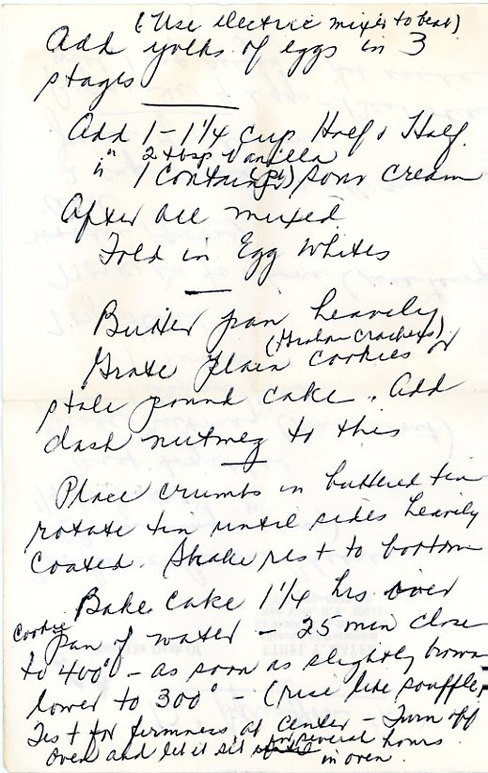 (Use electric mixer to beat)
Add yolks of eggs in 3
stages
Add 1-1 1/4 cup Half & Half
" 2 tbsp Vanilla
" 1 container (pt) sour cream
After all mixed
Fold in Egg Whites
Butter pan heavily
(Graham crackers)
Grate plain cookies or
stale pound cake. Add
dash nutmeg to this
Place crumbs in buttered tin
rotate tin until sides heavily
coated. Shake rest to bottom
Bake cake 1 1/4 hrs over
Cookie
pan of water - 25 min close
to 400° - as soon as slightly brown
lower to 300° - (rise like souffle)
Test for firmness at center - Turn off
oven and let it sit for several hours
in oven.